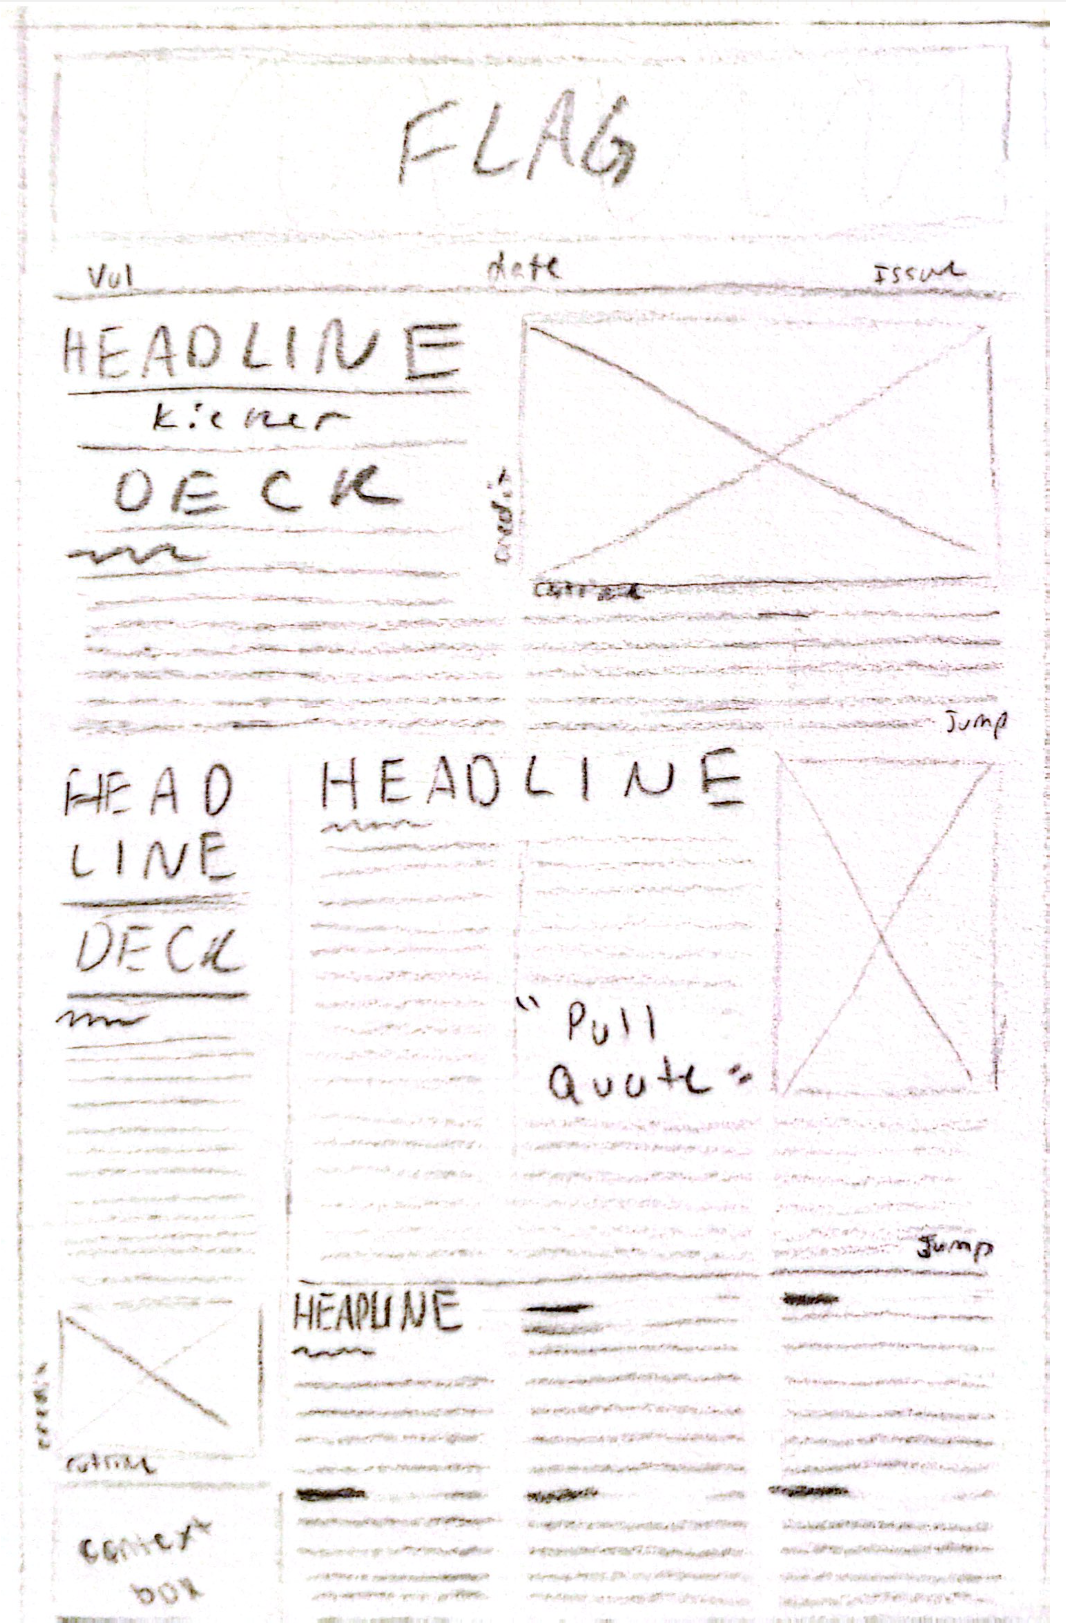 FLAG
Vol date Issue
HEADLINE
Kicker
DECK
credit
cutline
Jump
HEAD
LINE
DECK
HEADLINE
"Pull
Quote"
Jump
HEADLINE
credit
cutline
context
box